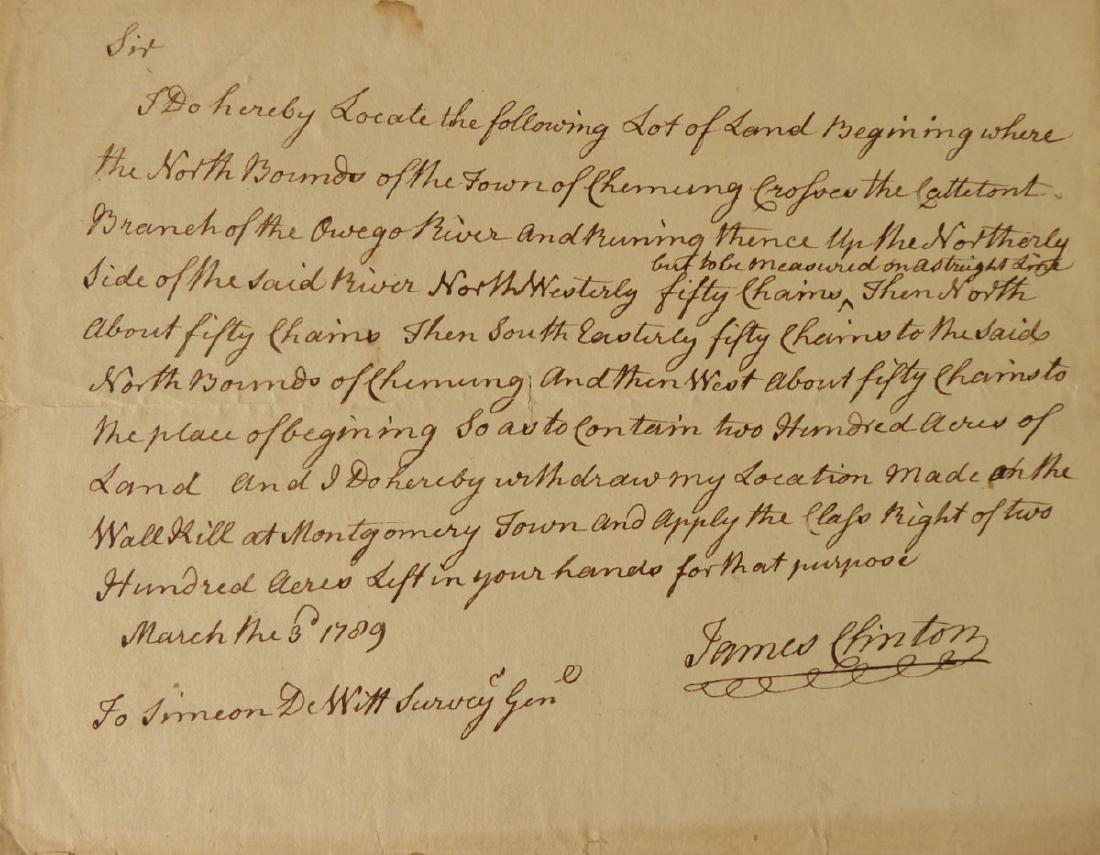 Sir
I Do hereby Locate the following Lot of Land Begining where
the North Bounds of the Town of Chemung Crosses the Cattetont
Branch of the Owego River and Runing thence Up the Northerly
Side of the said River North Westerly fifty Chains ^ Then North
but to be Measured on a streight Line
About fifty Chains Then South Easterly fifty Chains to the Said
North Bounds of Chemung And then West about fifty Chains to
the place of begining So as to Contain two Hundred Acres of
Land And I Do hereby withdraw my Location Made on the
Wall Kill at Montgomery Town and Apply the Class Right of two
Hundred Acres Left in your hands for that purpose
March the 3d 1789
James Clinton
To Simeon De Witt Survey.r Genl